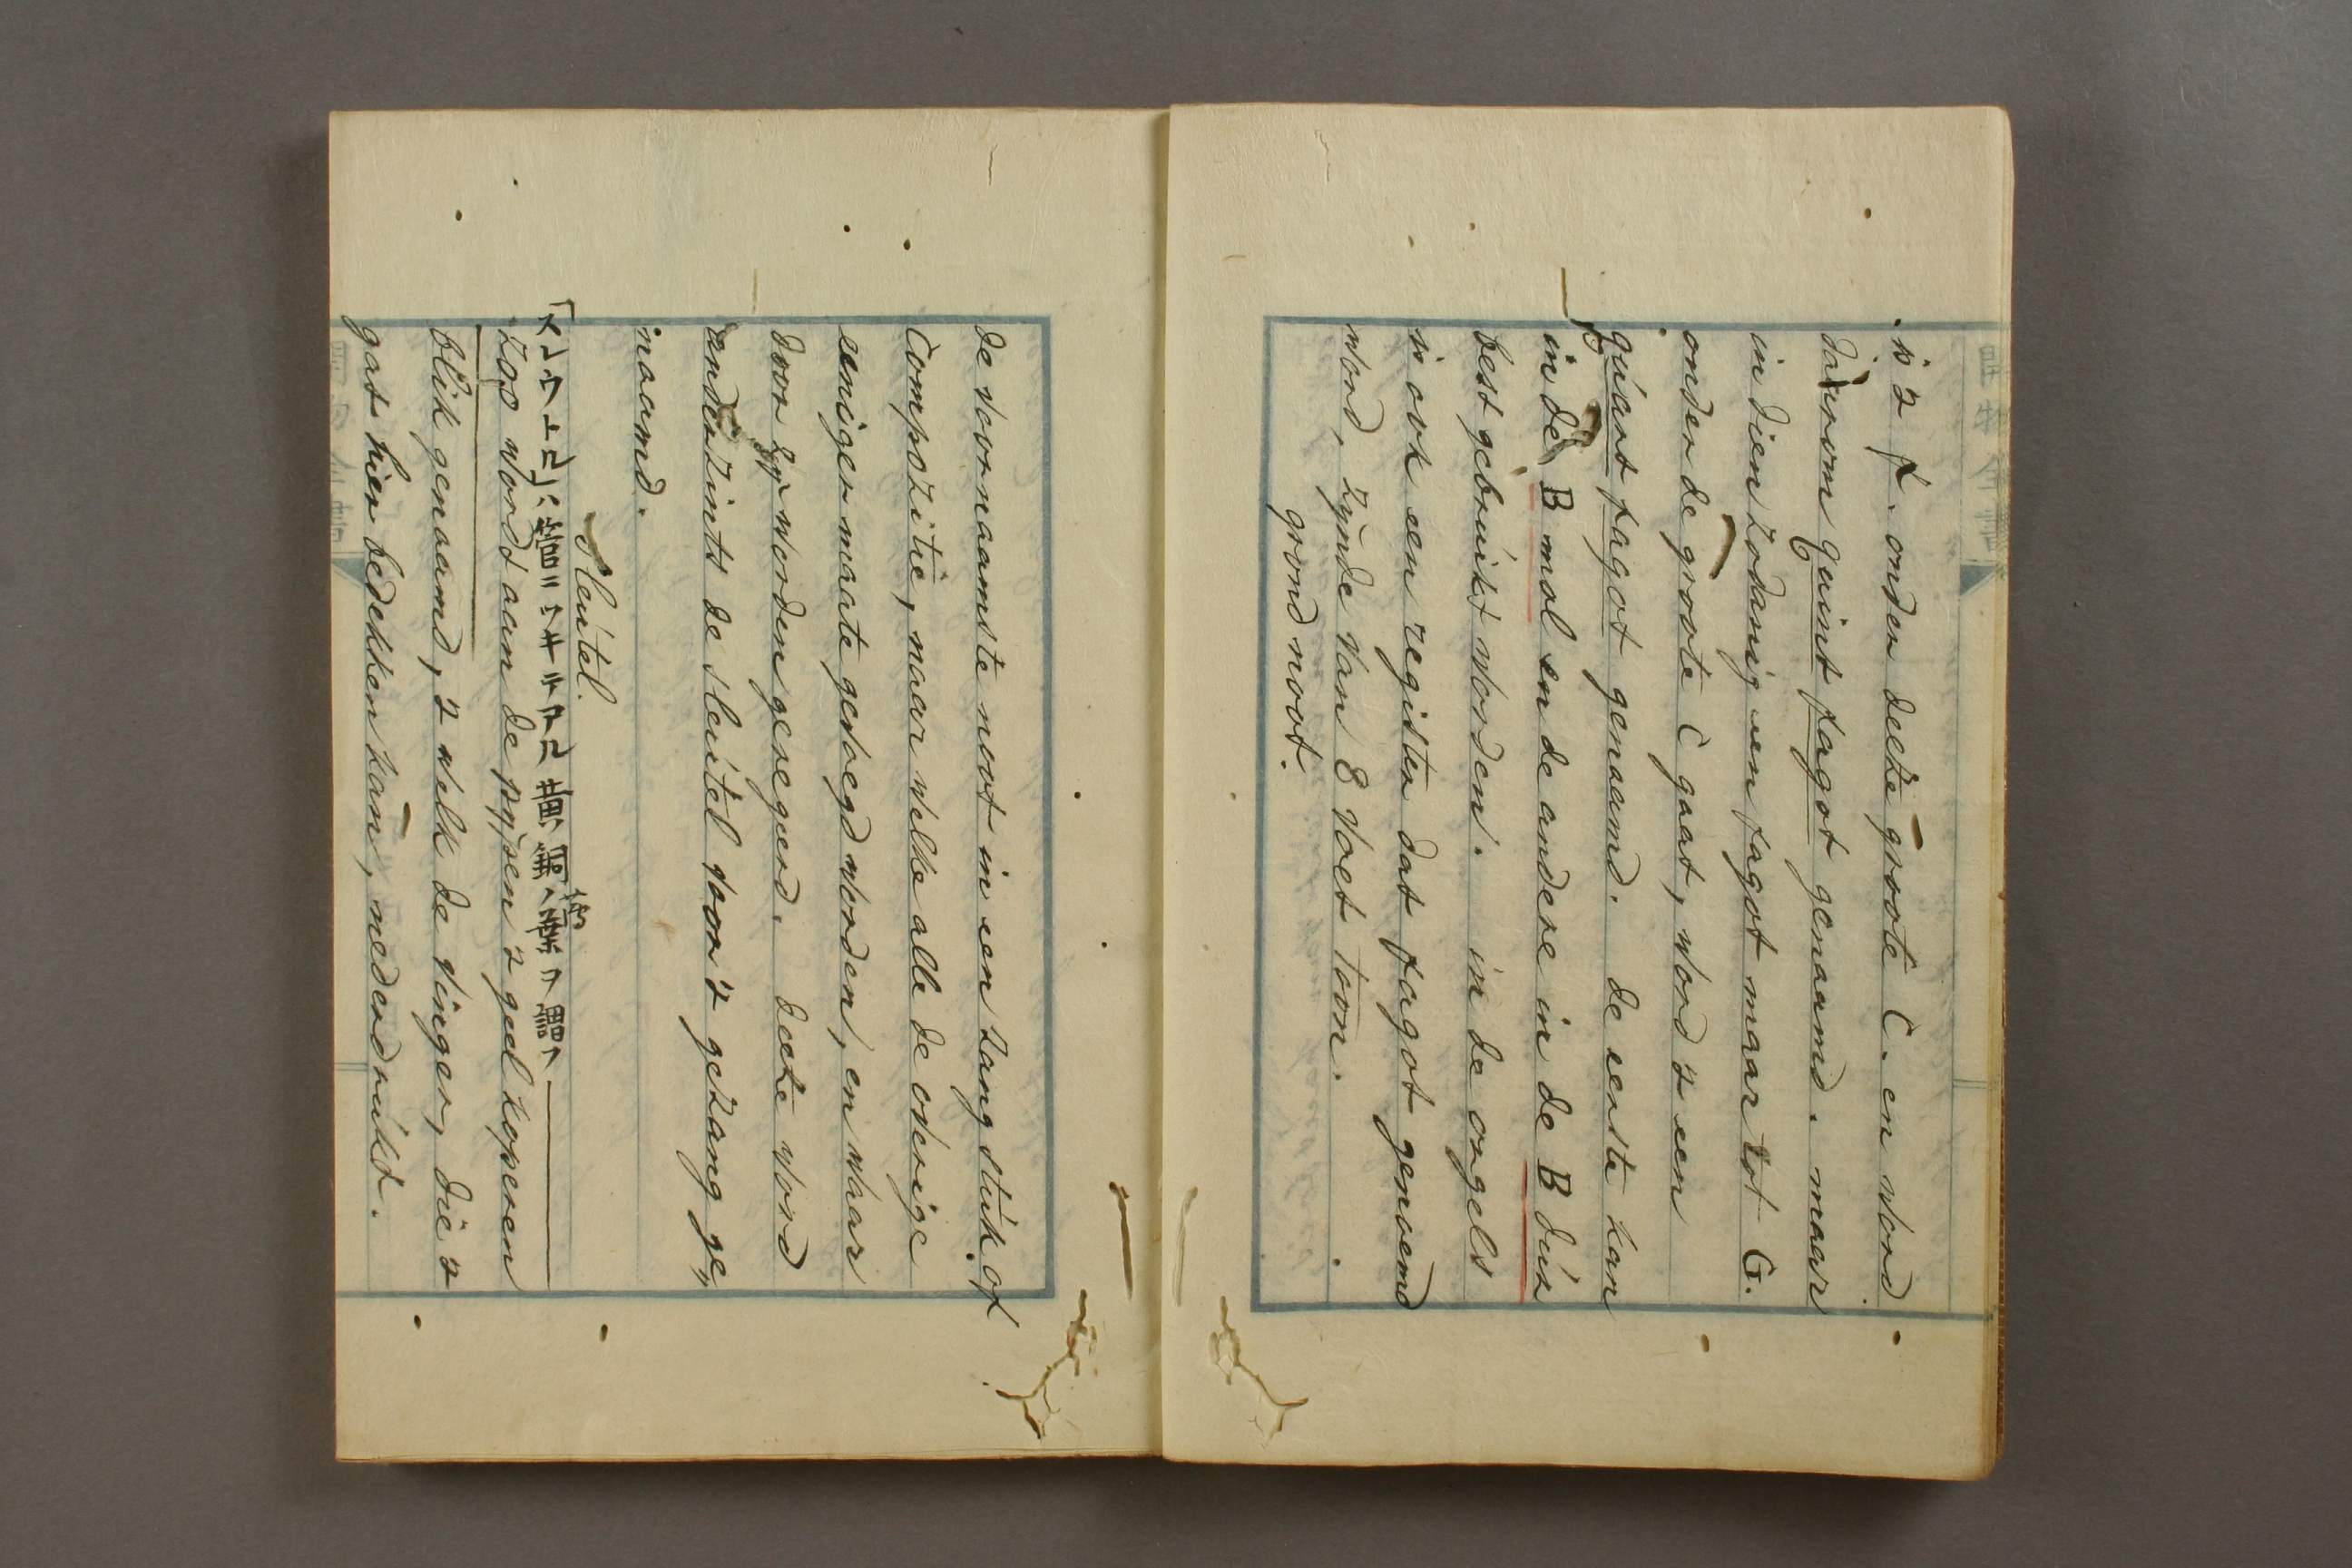 is 't f. onder deeze groote C. en word
daarom quint fagot genaamd. maar
in dien zodanig een fagot maar tot G.
onder de groote C gaat, word 't een
quart fagot genaamd. de eerste kan
in de B mol en de andere in de B dur
best gebruikt worden. in de orgels
is ook een register dat fagot genoemd
word, zynde van 8 voet toon.
grond noot.
de voornaamste noot in een zang stuk of
Compozitie, naar welke alle de overige
eeniger maate gevoegd worden, en waar
door zy worden geregeerd. deeze word
anderzints de sleutel voor 't gezang ge„
naamd.
sleutel.
黄銅
zoo word aan de pypen 't geel koperen
blik genaamd, 't welk de vinger, die 't
gat hier bedekken kan, nederdrukt.
開物全書